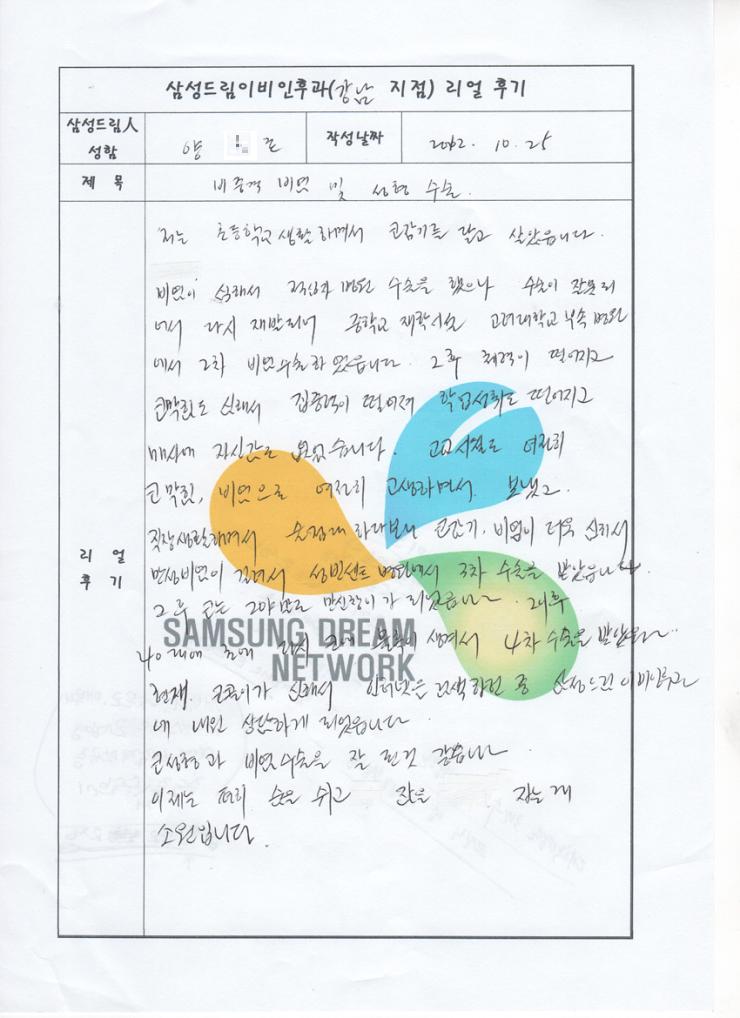 삼성드림이비인후과(강남 지점) 리얼 후기
삼성드림人
성함
양 준
작성날짜
2012. 10. 25
제 목
비중격 비염 및 성형 수술.
리 얼
후 기
저는 초등학교 생활 하면서 코감기를 달고 살았습니다.
비염이 심해서 적십자 병원 수술을 했으나 수술이 잘못되
어서 다시 재발되어 중학교 재학시절 고려대학교 부속 병원
에서 2차 비염수술하였습니다. 그후 체력이 떨어지고
코막힘도 심해서 집중력이 떨어져 학업성취도 떨어지고
매사에 자신감도 없었습니다. 고교시절도 여전히
코막힘, 비염으로 여전히 고생하면서 보냈고.
직장생활하면서 하다보니 코감기, 비염이 더욱 심해서
만성비염이 걸려서 성빈센트 병원에서 3차 수술을 받았습니다
그 후 코는 그야말로 만신창이가 되었습니다. 그이후
40대에 초에 다시 코에 물혹이 생겨서 4차 수술을 받았습니다..
SAMSUNG DREAM
NETWORK
현재. 코골이가 심해서 인터넷을 검색하던 중 삼성드림이비인후과
에 내원 상담하게 되었습니다.
코성형과 비염수술을 잘 된것 같습니다
이제는 편히 숨을 쉬고 잠을 자는게
소원입니다.